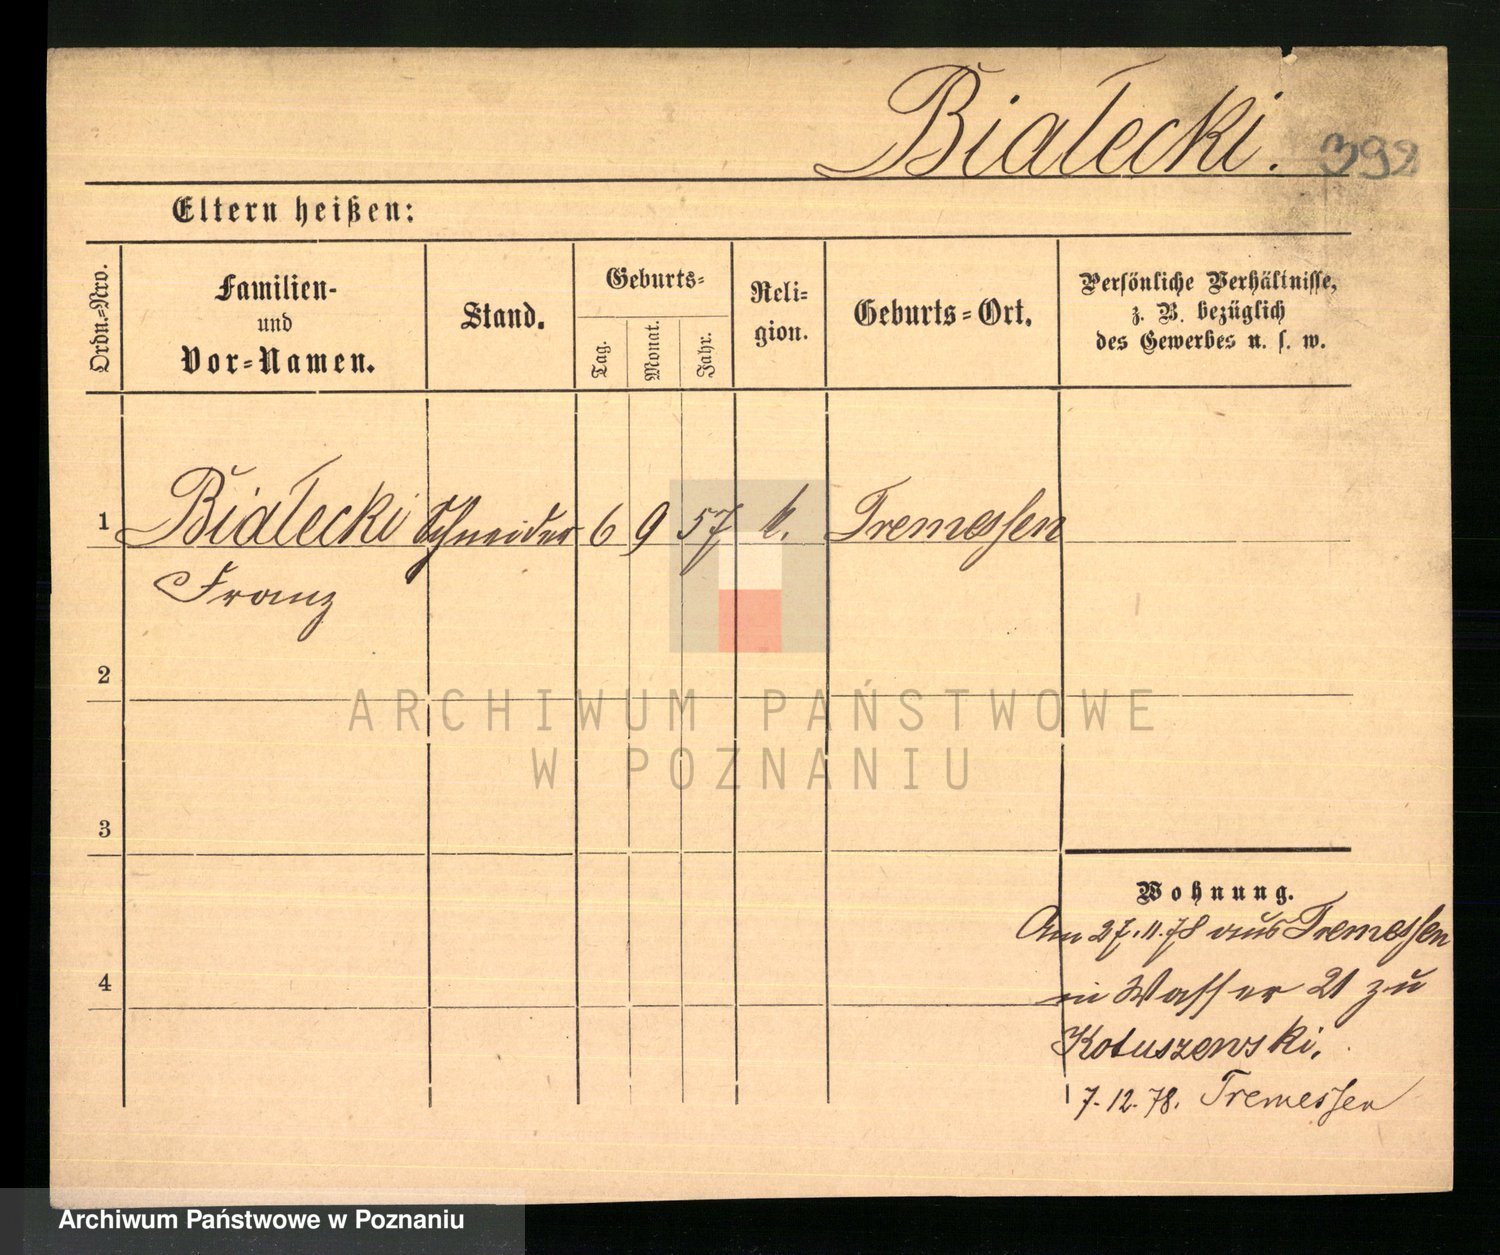 Białecki.
392
Eltern heißen:
Ordn.=Nro.
Familien-
und
Vor=Namen.
Stand.
Geburts=
Tag.
Monat.
Jahr.
Reli=
gion.
Geburts=Ort.
Persönliche Verhältnisse,
z. B. bezüglich
des Gewerbes u. s. w.
1 Białecki Schneider 6 9 57 k. Tremessen
Franz
2
3
4
ARCHIWUM PAŃSTWOWE
W POZNANIU
Wohnung.
Am 27.11.78 aus Tremessen
in Wasser 21 zu
Kotuszewski.
7.12.78. Tremessen
Archiwum Państwowe w Poznaniu